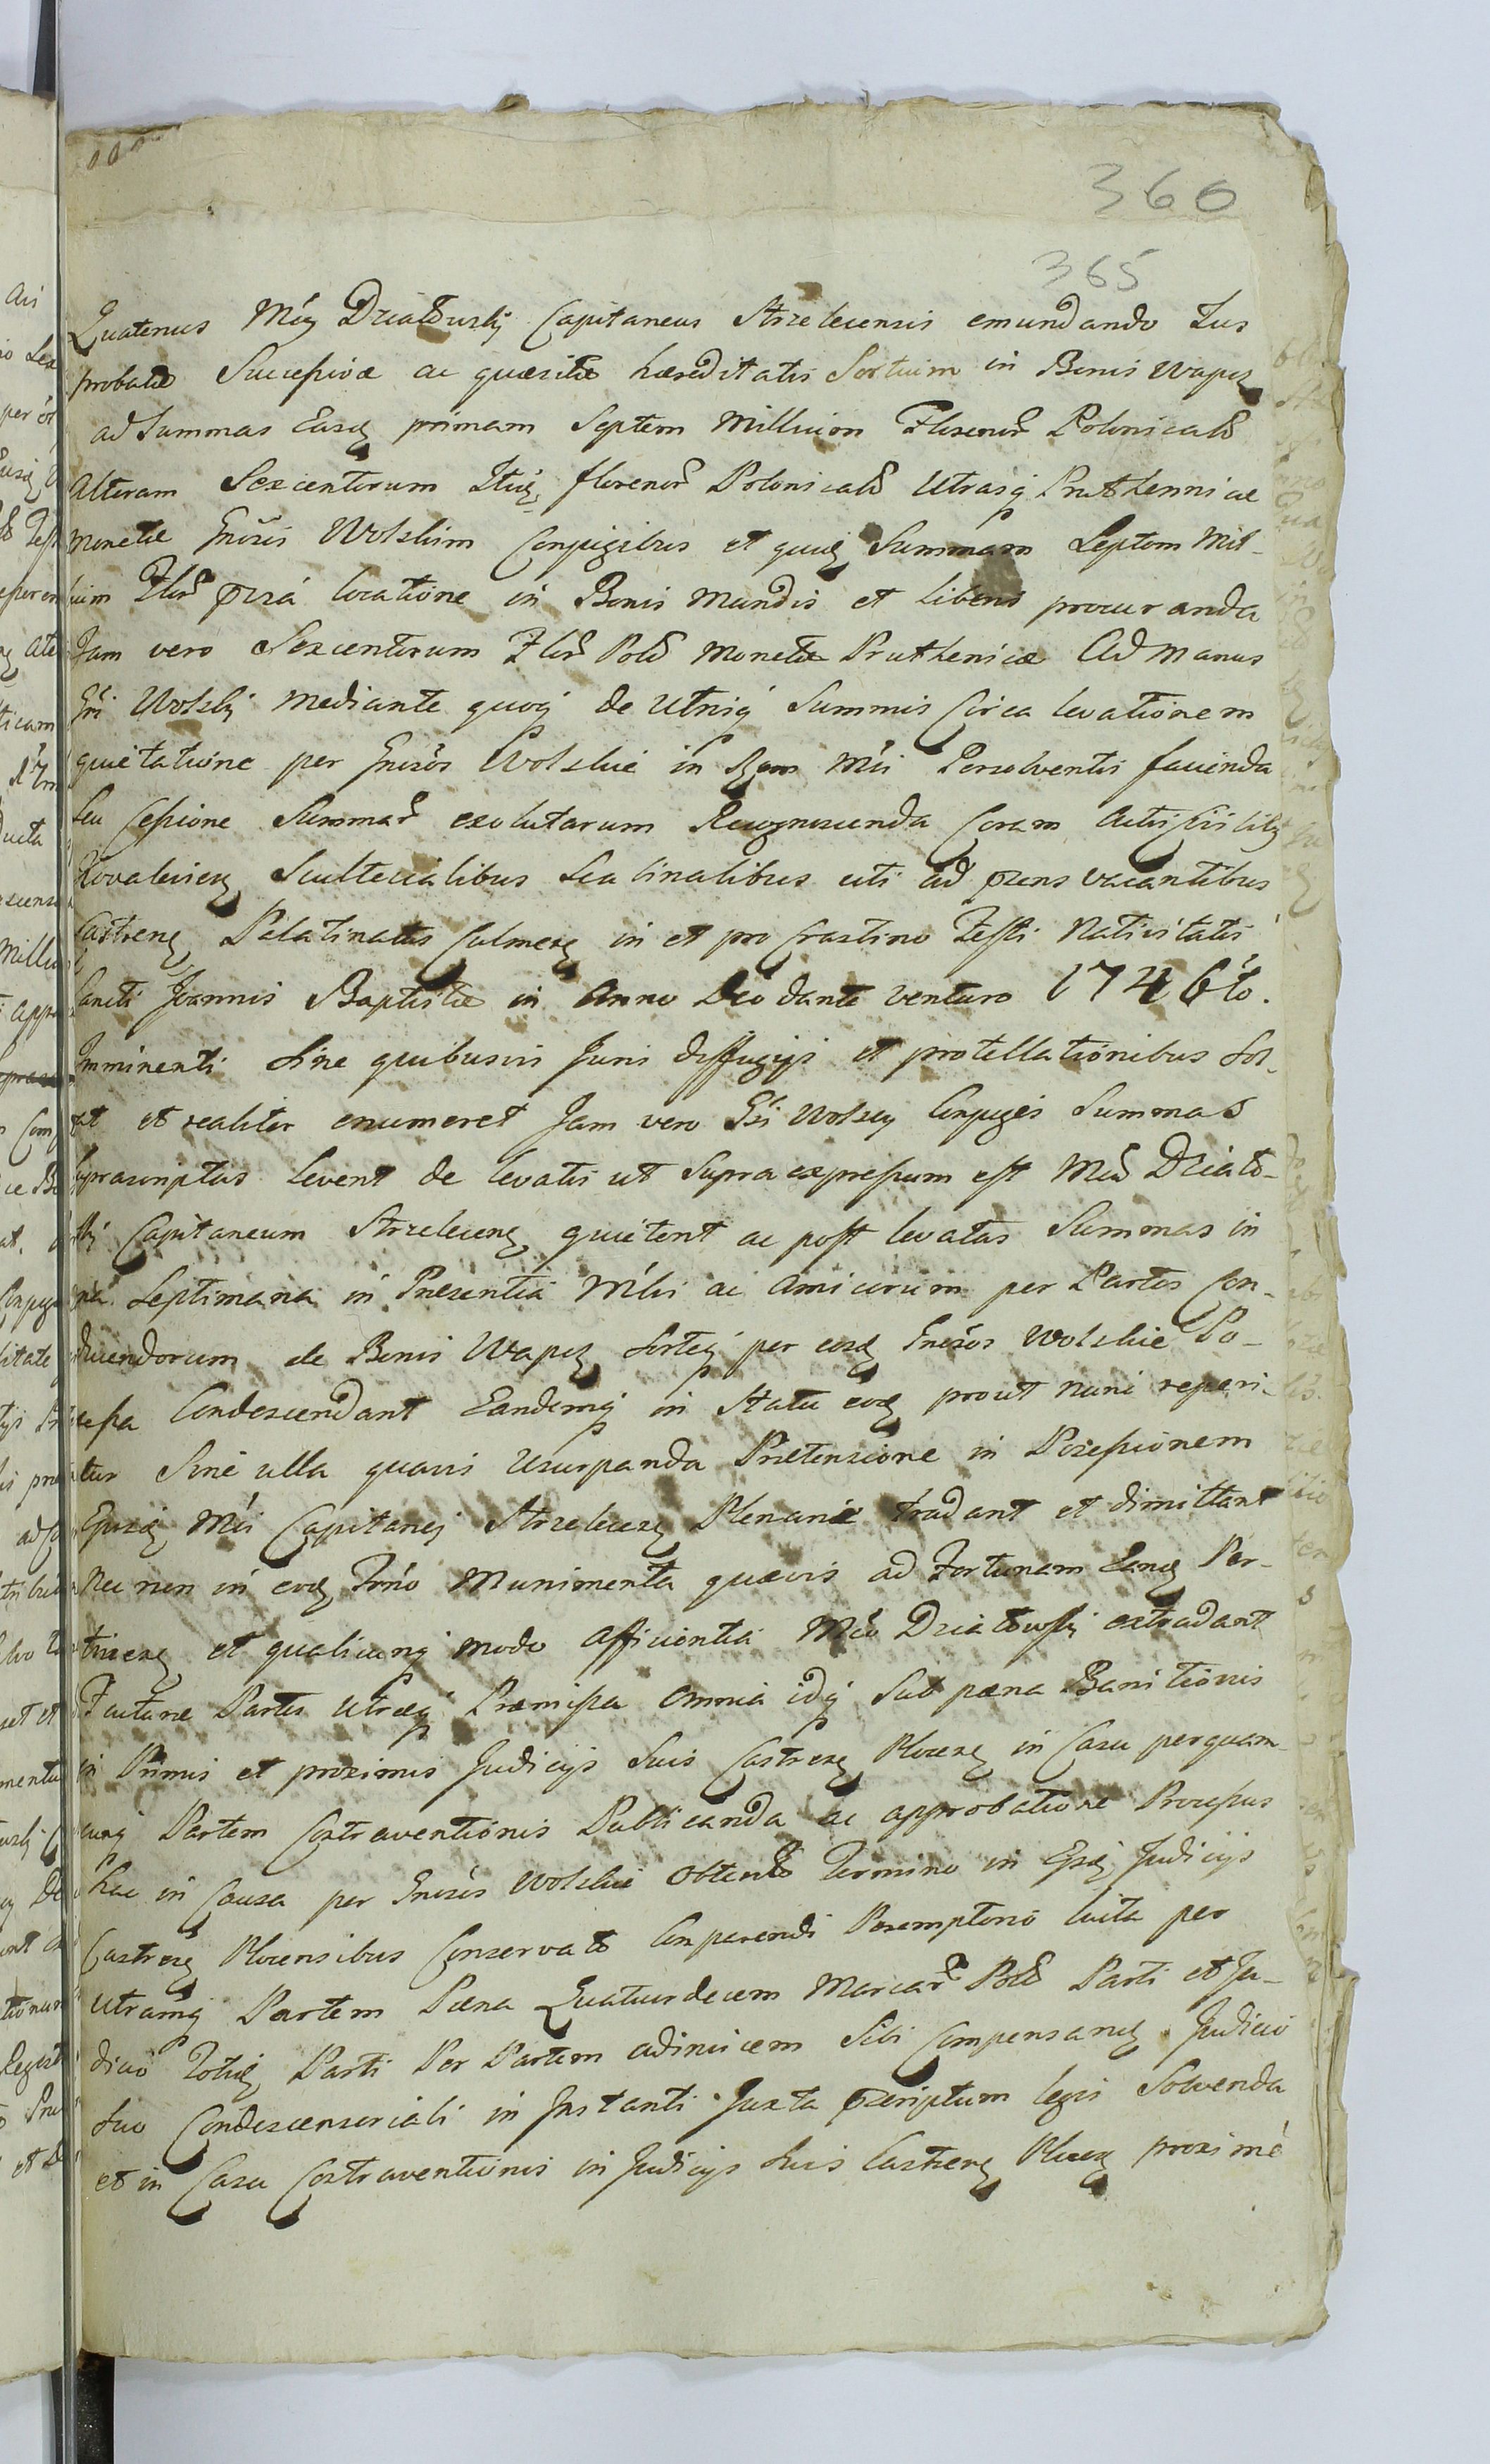 360
365
Quatenus Mcús Działouskÿ Capitaneus Strzelecensis emundando Jus
probatæ Successivæ ac quæsitæ hæreditatis Sortium in Bonis Wapcz
ad Summas Easq primam Septem Millium Florenor Polonicał
alteram Sexcentorum Itidq florenor Polonicał Utrasq Pruthennicae
Monetæ Gnosis Wolskim Conjugibus et quidq Summam Septem Mil-
lium Flor locatione in Bonis Mundis et liberis procuranda
Jam vero Sexcentorum Flor Poll Monetæ Pruthenicæ Ad Manus
Wolskÿ Mediante quoq de Utrisq Summis Circa levationem
quietatione per Gnosos Wolskie in Rem Mci Persolventis facienda
Seu Cessione Summar exolutarum Recognoscenda Coram Actis
Kovalevien Scultecialibus Scabinalibus uti ad præns vacantibus
Castren Palatinatus Culmen in et pro Crastino Festi Nativitatis
Sancti Joannis Baptistæ in Anno Deo dante venturo 1746to.
Imminenti Sine quibusvis Juris diffugijs et protellationibus Sol-
vat et realiter enumeret Jam vero Gsi Wolscy Conjuges Summas
suprascriptas levent de levatis ut Supra expressum est Mcum Działo-
Capitaneum Strzelecen quietent ac post levatas Summas in
Septimana in Præsentia Mlis ac Amicorum per Partes Con-
ducendorum de Bonis Wapcz Sorteq per eosd Gnosos Wolskie Po-
sessa Condescendant Eandemq in Statu eod prout nunc reperi-
tur Sine ulla quavis Usurpanda Prætensione in Possessionem
Ejusdq Mci Capitanej Strzelecen Plenariè tradant et dimittant
Nec non in eodq Trno Munimenta quævis ad Fortunam Eandq Per-
tinen et qualicunq modo afficientia Mco Działowski extradant
Facturæ Partes Utræq Præmissa Omnia idq Sub pæna Banitionis
in Primis et proximis Judicijs Suis Castren Plocen in Casu perquam-
cunq Partem Contraventionis Publicanda ac approbatione Processus
hac in Causa per Gnosos Wolskie Obtento Termino in Ejsdq Judicijs
Castren Plocensibus Conservato Comparendi Peremptorio luita per
Utramq Partem Pæna Quatuordecem Marcar Poll Parti et Ju-
dicio Totidq Parti Per Partem adinvicem Sibi Compensandq Judicio
Suo Condescensoriali in Instanti Juxta præscriptum legis Solvenda
et in Casu Contraventionis in Judicijs Suis Castren Plocen proximè